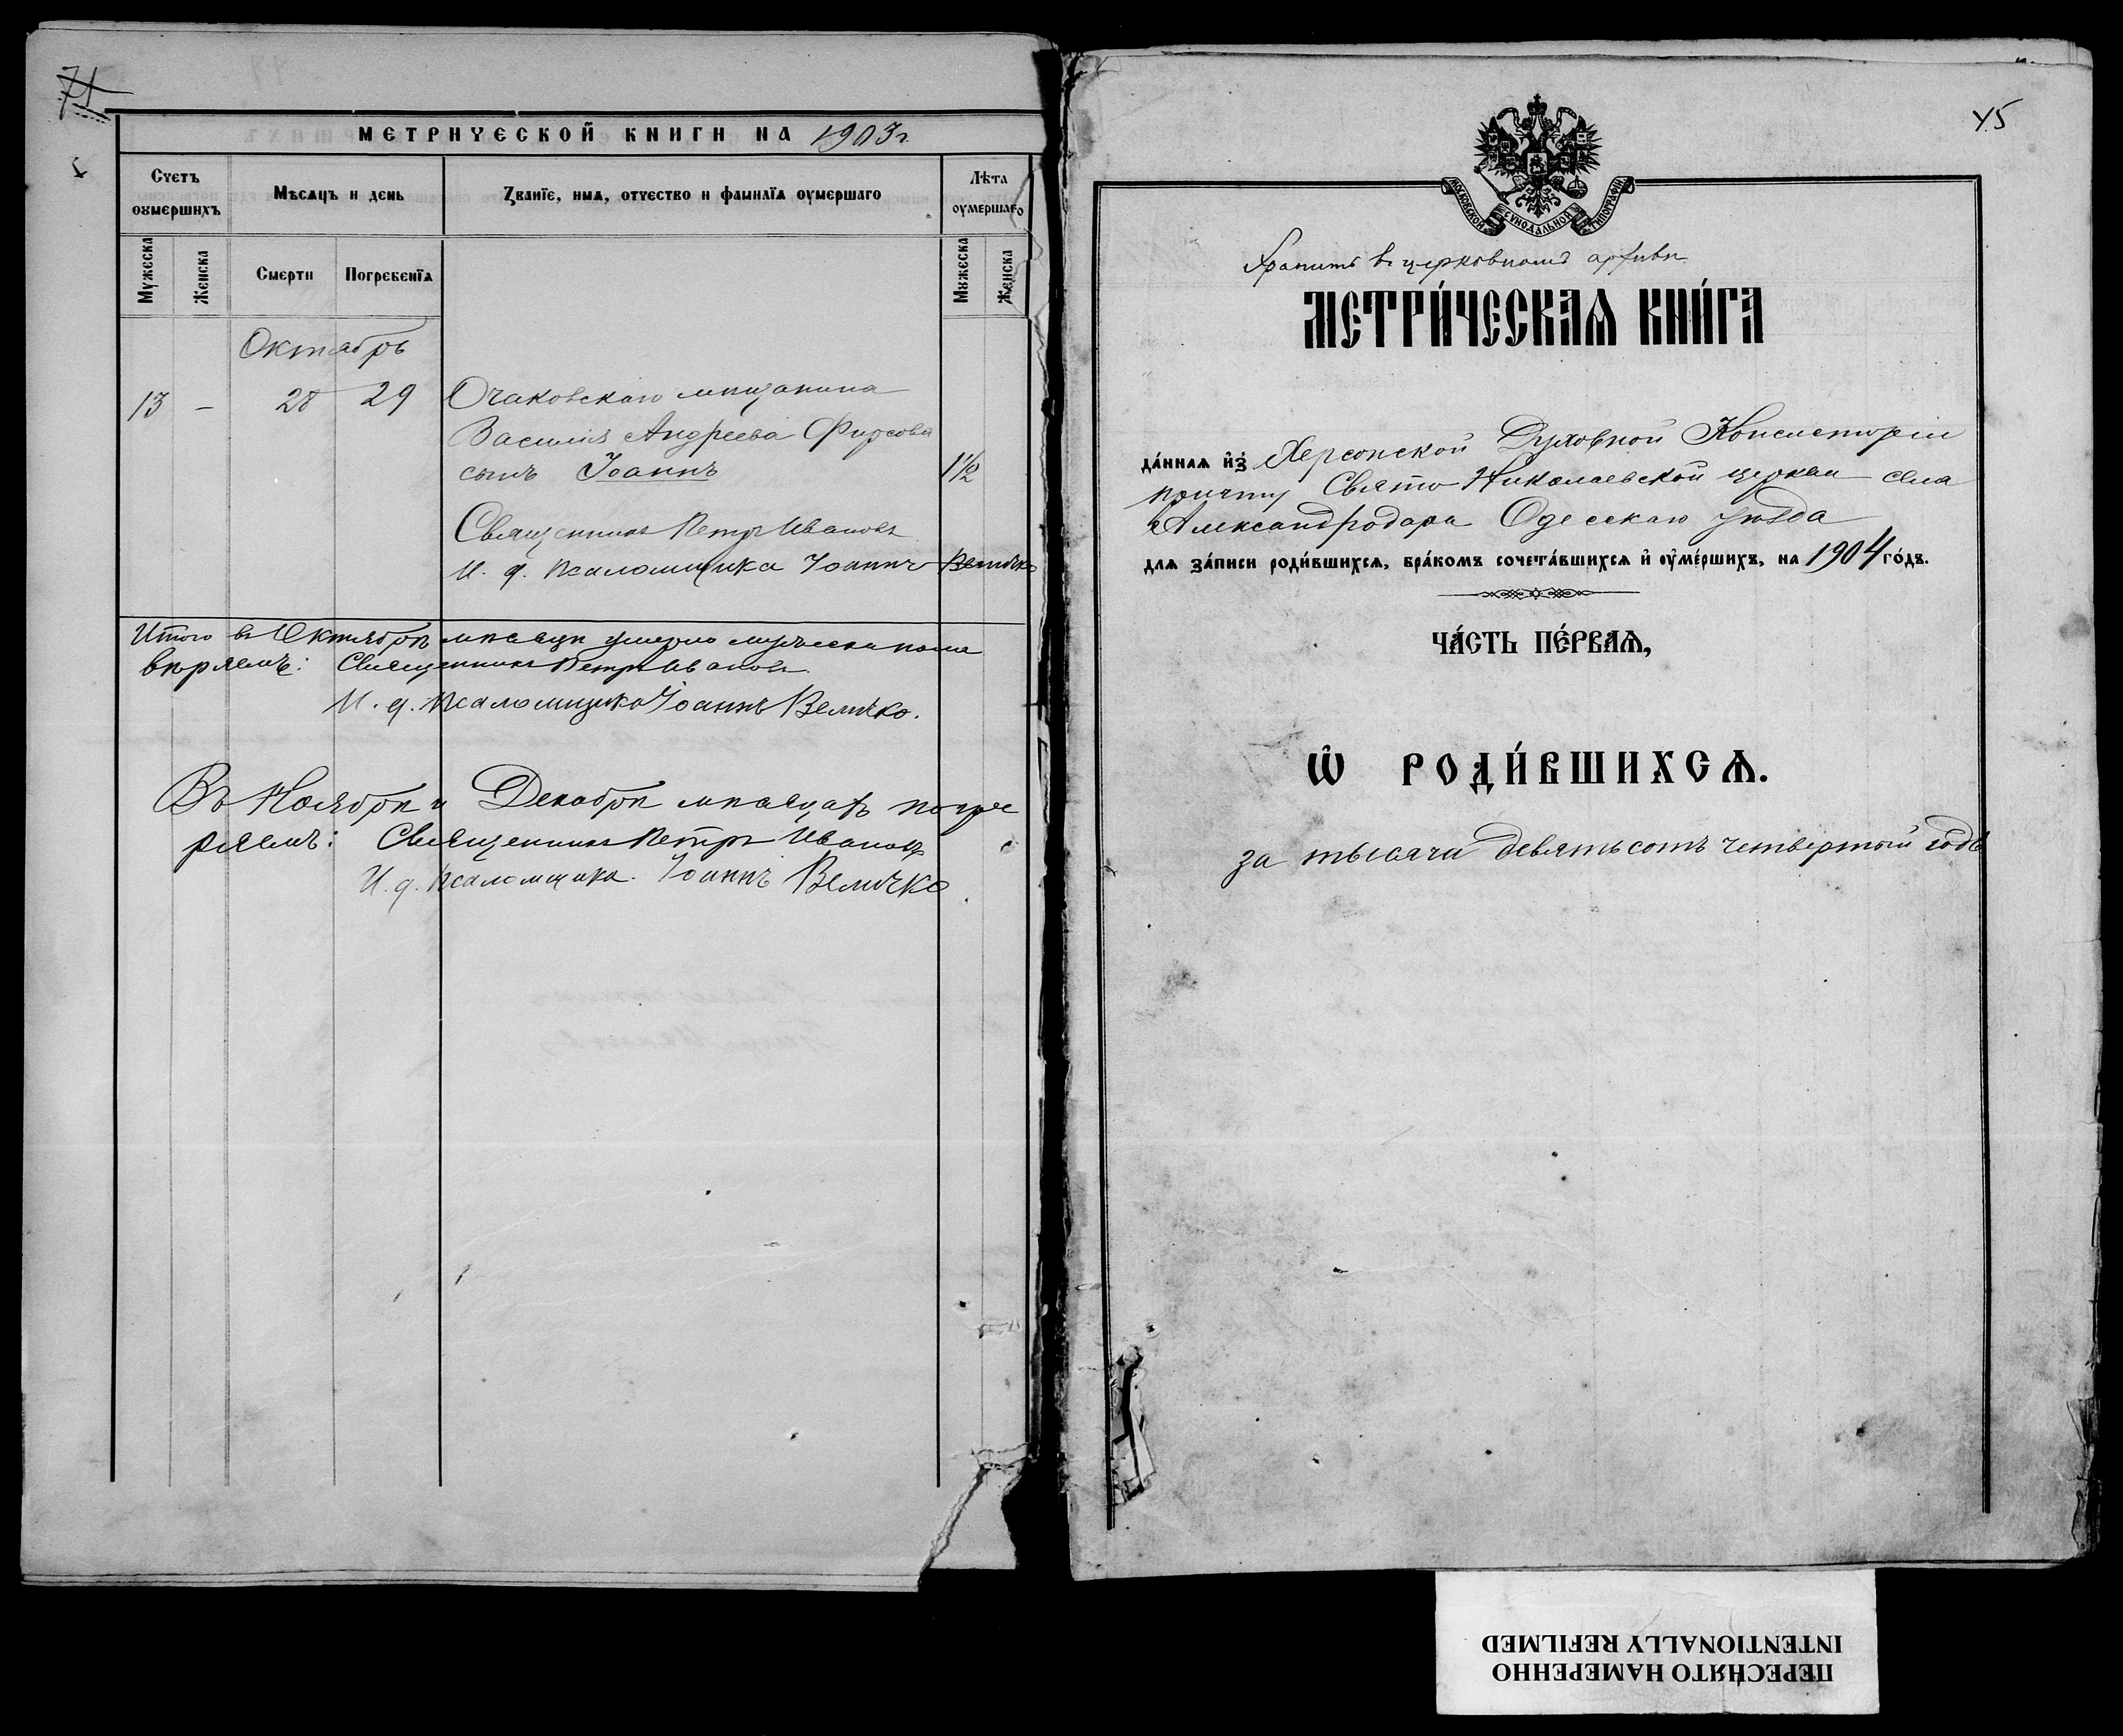 71
МЕТРИЧЕСКОЙ КНИГИ НА 1903 г.
Счетъ оумершихъ
Мѣсяцъ и день
Званїе, имя, отчество и фамилїя оумершаго
Лѣта оумершаго
Мужеска
Женска
Смерти
Погребенїя
Мужеска
Женска
Октябрь
13 – 28 29 Очаковскаго мѣщанина
Василія Андреева Фирсова
сынъ Іоаннъ 1½
Священникъ Петръ Ивановъ
И. д. псаломщика Іоаннъ Величко
Итого въ Октябрѣ мѣсяцѣ умерло мужеска пола
Священникъ Петръ Ивановъ
И. д. псаломщика Іоаннъ Величко.
Въ Ноябрѣ и Декабрѣ мѣсяцахъ
Священникъ Петръ Ивановъ
И. д. псаломщика Іоаннъ Величко
45
МОСКОВСКОЙ СѴНОДАЛЬНОЙ ТИПОГРАФІИ
Хранить въ церковномъ архивѣ
МЕТРИ́ЧЕСКАѦ КНИ́ГА
да́нная и҆з̾ Херсонской Духовной Консисторіи
причту Свято-Николаевской церкви села
Александродара Одесскаго уѣзда
для за́писи роди́вшихся, бра́комъ сочета́вшихся и҆ оу҆ме́ршихъ, на 1904 го́дъ.
ЧА́СТЬ ПЕ́РВАѦ,
Ѡ҆ РОДИ́ВШИХСѦ.
за тысяча девятьсотъ четвертый годъ
ПЕРЕСНЯТО НАМЕРЕННО
INTENTIONALLY REFILMED